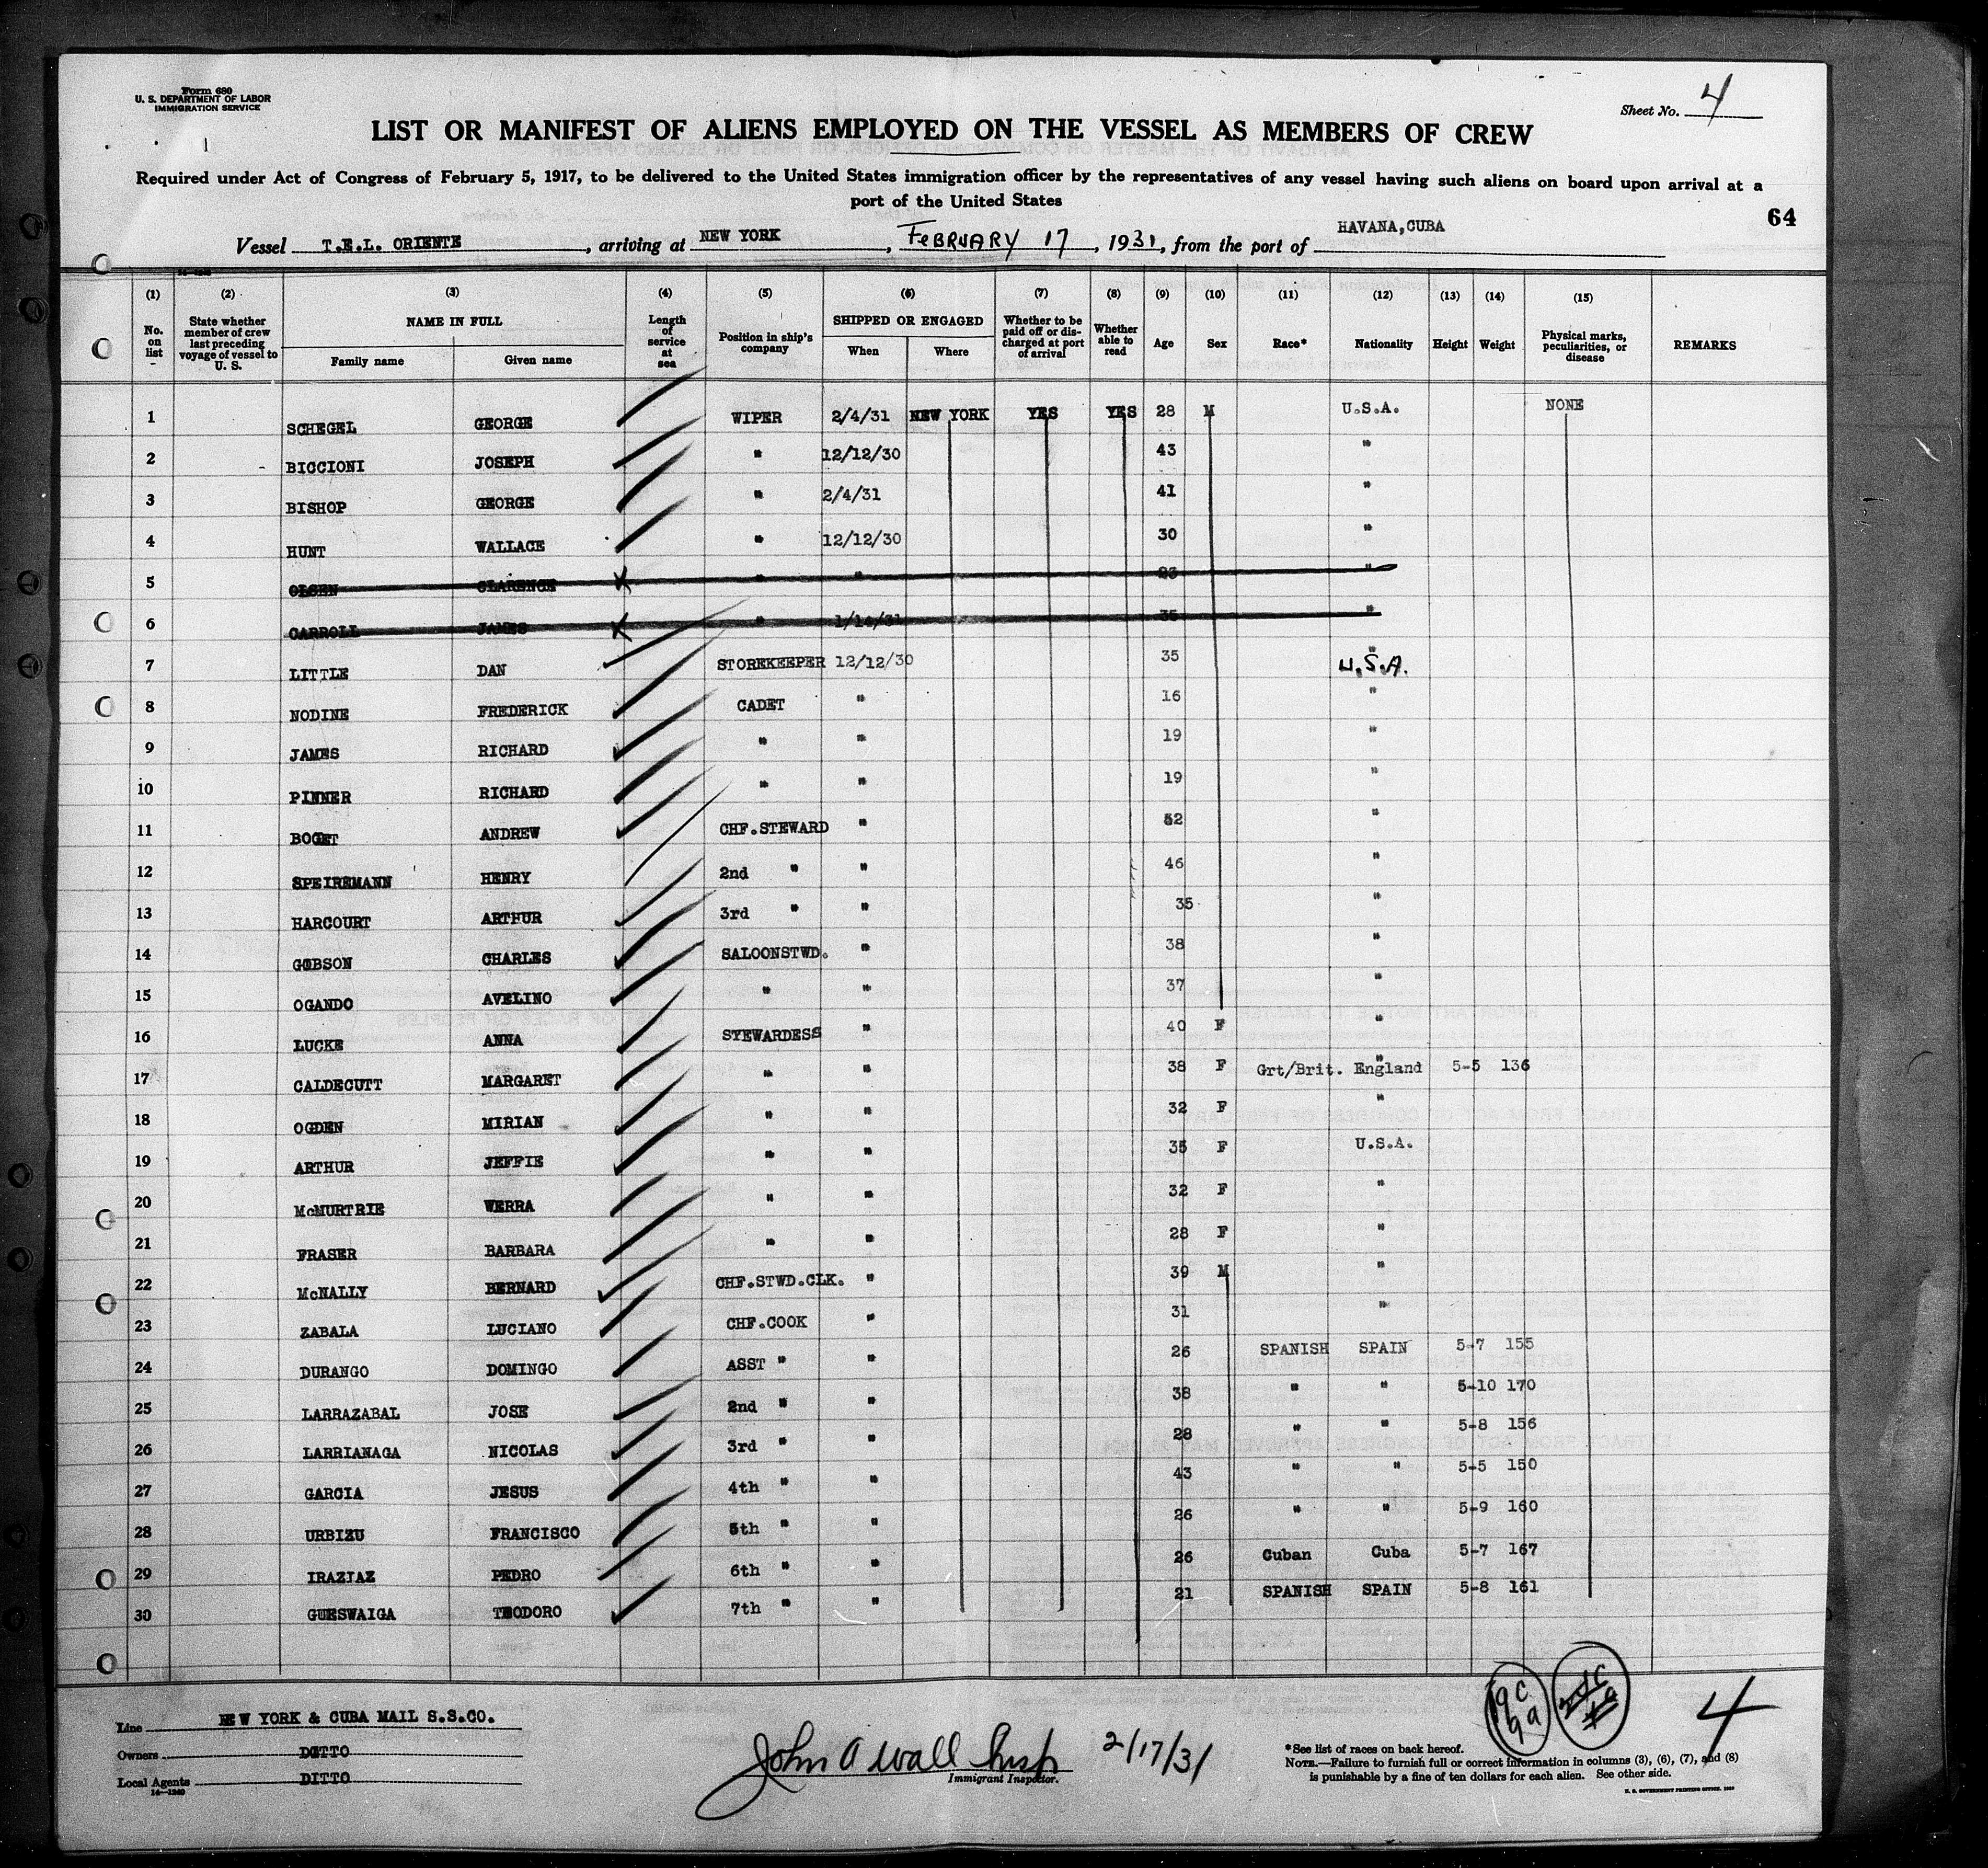 Form 680
U. S. DEPARTMENT OF LABOR
IMMIGRATION SERVICE
Sheet No. 4
LIST OR MANIFEST OF ALIENS EMPLOYED ON THE VESSEL AS MEMBERS OF CREW
Required under Act of Congress of February 5, 1917, to be delivered to the United States immigration officer by the representatives of any vessel having such aliens on board upon arrival at a
port of the United States
64
Vessel T.E.L. ORIENTE, arriving at NEW YORK, FEBRUARY 17, 1931, from the port of HAVANA,CUBA
(1) (2) (3) (4) (5) (6) (7) (8) (9) (10) (11) (12) (13) (14) (15)
No. on list State whether member of crew last preceding voyage of vessel to U. S. NAME IN FULL Family name Given name Length of service at sea Position in ship's company SHIPPED OR ENGAGED When Where Whether to be paid off or discharged at port of arrival Whether able to read Age Sex Race* Nationality Height Weight Physical marks, peculiarities, or disease REMARKS
1 SCHEGEL GEORGE WIPER 2/4/31 NEW YORK YES YES 28 M U.S.A. NONE
2 BICCIONI JOSEPH " 12/12/30 43 "
3 BISHOP GEORGE " 2/4/31 41 "
4 HUNT WALLACE " 12/12/30 30 "
5 OLSEN CLARENCE " " 23 "
6 CARROLL JAMES " 1/14/31 35 "
7 LITTLE DAN STOREKEEPER 12/12/30 35 " U.S.A.
8 NODINE FREDERICK CADET " 16 "
9 JAMES RICHARD " " 19 "
10 PINNER RICHARD " " 19 "
11 BOGET ANDREW CHF.STEWARD " 52 "
12 SPEIREMANN HENRY 2nd " " 46 "
13 HARCOURT ARTHUR 3rd " " 35 "
14 GOBSON CHARLES SALOONSTWD. " 38 "
15 OGANDO AVELINO " " 37 "
16 LUCKE ANNA STEWARDESS " 40 F "
17 CALDECUTT MARGARET " " 38 F Grt/Brit. " England 5-5 136
18 OGDEN MIRIAN " " 32 F "
19 ARTHUR JEFFIE " " 35 F U.S.A.
20 McMURTRIE WERRA " " 32 F "
21 FRASER BARBARA " " 28 F "
22 McNALLY BERNARD CHF.STWD.CLK. " 39 M "
23 ZABALA LUCIANO CHF.COOK " 31 "
24 DURANGO DOMINGO ASST " " 26 SPANISH SPAIN 5-7 155
25 LARRAZABAL JOSE 2nd " " 38 " " 5-10 170
26 LARRIANAGA NICOLAS 3rd " " 28 " " 5-8 156
27 GARCIA JESUS 4th " " 43 " " 5-5 150
28 URBIZU FRANCISCO 5th " " 26 " " 5-9 160
29 IRAZIAZ PEDRO 6th " " 26 Cuban Cuba 5-7 167
30 GUESWAIGA TEODORO 7th " " 21 SPANISH SPAIN 5-8 161
Line NEW YORK & CUBA MAIL S.S.CO.
Owners DITTO
Local Agents DITTO
14—1240
John A Wall Insp 2/17/31
Immigrant Inspector.
19C
9a
4
*See list of races on back hereof.
NOTE.—Failure to furnish full or correct information in columns (3), (6), (7), and (8)
is punishable by a fine of ten dollars for each alien. See other side.
U. S. GOVERNMENT PRINTING OFFICE